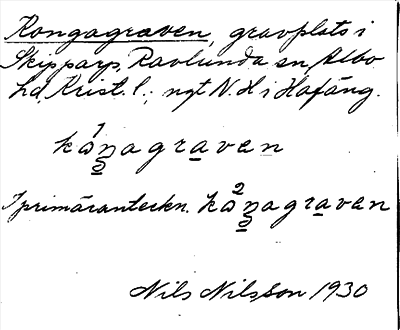 Kongagraven, gravplats i
Skipparp, Ravlunda sn, Albo
hd, Krist. l.; ngt N. H. i Hafäng.
kɷ̀ŋagraven
I primäranteckn. kɷ̀ŋagraven
Nils Nilsson 1930